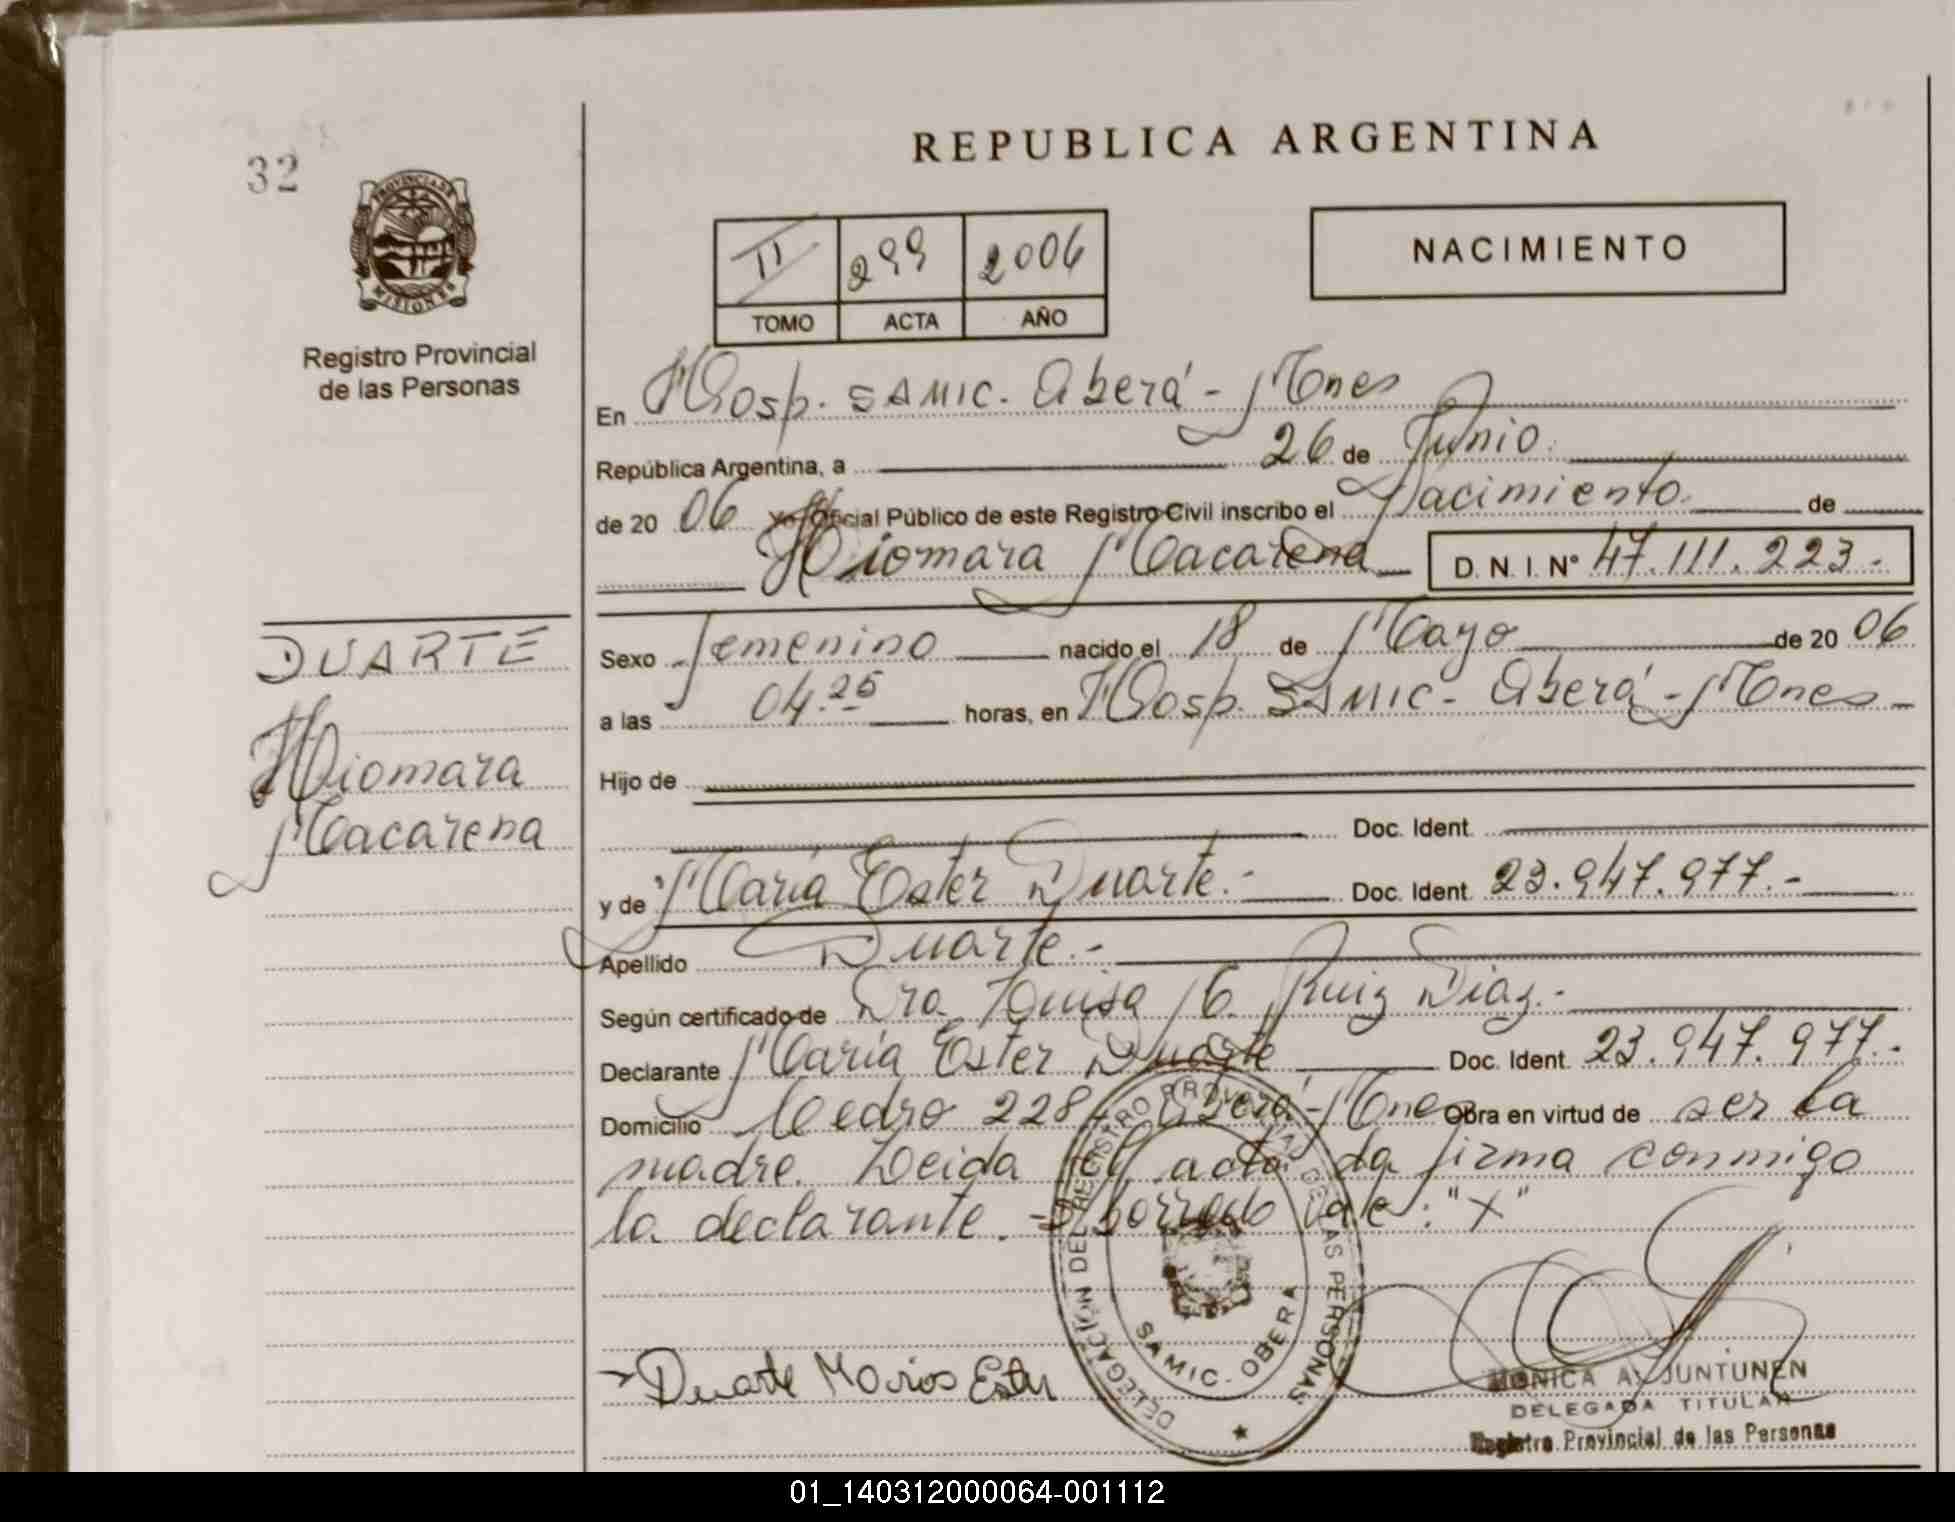 32
REPUBLICA ARGENTINA
PROVINCIA DE
MISIONES
Registro Provincial
de las Personas
II 299 2006
TOMO ACTA AÑO
NACIMIENTO
En Hosp. SAMIC. Oberá - Mnes
República Argentina, a 26 de Junio
de 20 06 Yo Oficial Público de este Registro Civil inscribo el Nacimiento de
Xiomara Macarena D. N. I. Nº 47.111.223.-
DUARTE
Xiomara
Macarena
Sexo femenino nacido el 18 de Mayo de 20 06
a las 04.25 horas, en Hosp. SAMIC - Oberá - Mnes -
Hijo de
Doc. Ident.
y de María Ester Duarte.- Doc. Ident. 23.947.977.-
Apellido Duarte.-
Según certificado de Dra. Luisa C. Ruiz Diaz.-
Declarante María Ester Duarte Doc. Ident. 23.947.977.-
Domicilio Cedro 228 - Oberá - Mnes Obra en virtud de ser la
madre. Leida el acta, da firma conmigo
la declarante. - Borrado vale: "X"
DELEGACIÓN DEL REGISTRO PROVINCIAL DE LAS PERSONAS
SAMIC - OBERA
Duarte Ester
MONICA A. JUNTUNEN
DELEGADA TITULAR
Registro Provincial de las Personas
01_140312000064-001112